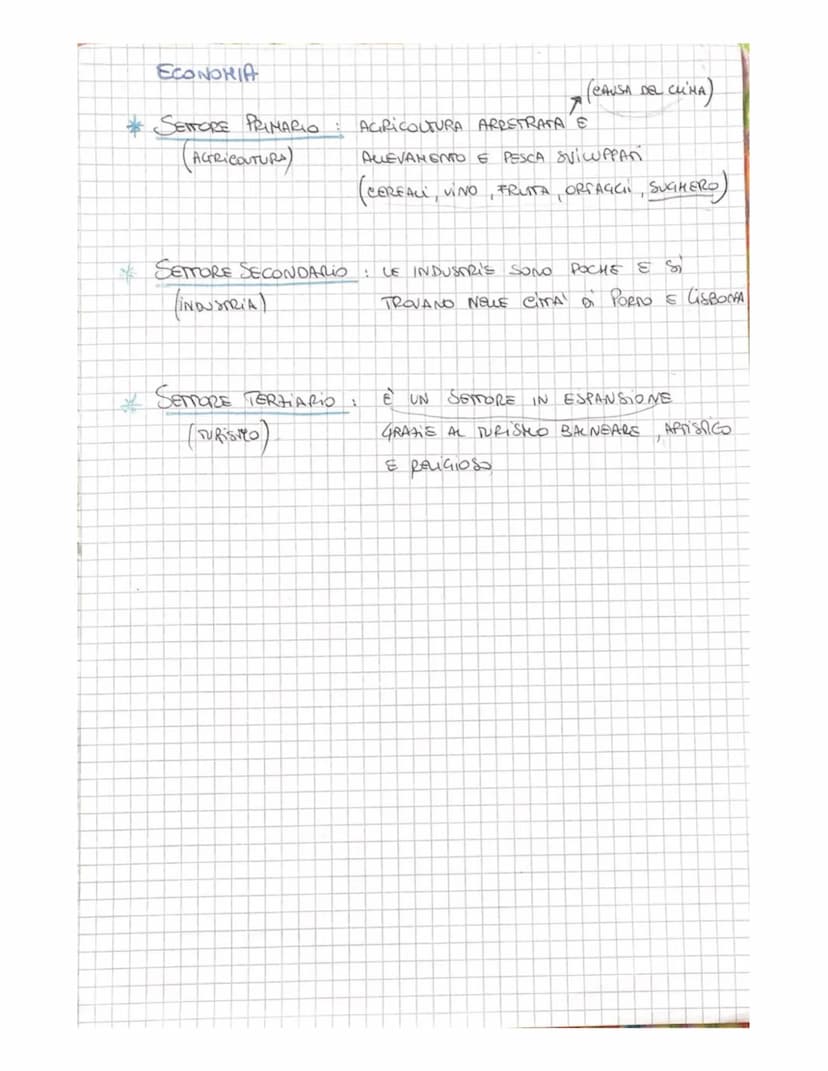 ECONOMIA
(CAUSA DEL CLIMA)
* SETTORE PRIMARIO : AGRICOLTURA ARRETRATA E
(AGRICOLTURA) ALLEVAMENTO E PESCA SVILUPPATI
(CEREALI, VINO, FRUTTA, ORTAGGI, SUGHERO)
* SETTORE SECONDARIO : LE INDUSTRIE SONO POCHE E SI
(INDUSTRIA) TROVANO NELLE CITTA' DI PORTO E LISBONA
* SETTORE TERZIARIO : È UN SETTORE IN ESPANSIONE
(TURISMO) GRAZIE AL TURISMO BALNEARE, ARTISTICO
E RELIGIOSO